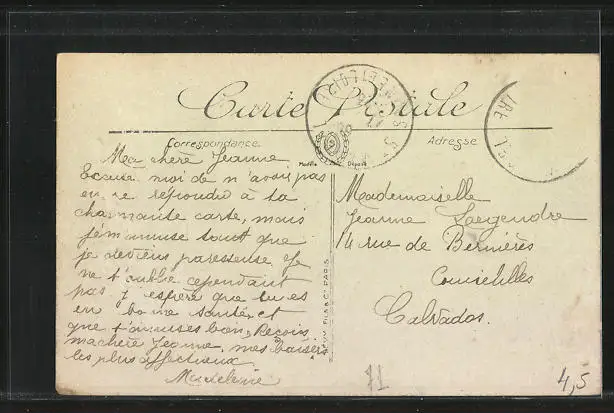 Carte Postale
Correspondance
Adresse
Modèle Déposé
Ma chère Jeanne
Excuse moi de n'avoir pas
en re répondu à ta
charmante carte, mais
je m'amuse tant que
je deviens paresseuse je
ne t'oublie cependant
pas j'espère que tu es
en bonne santé et
que t'amuses bien, Reçois
ma chère Jeanne, mes baisers
les plus affectueux
Madeleine
Mademoiselle
Jeanne
14 rue de Bernières
Courseulles
Calvados.
FILS & Cie PARIS
71
4,5